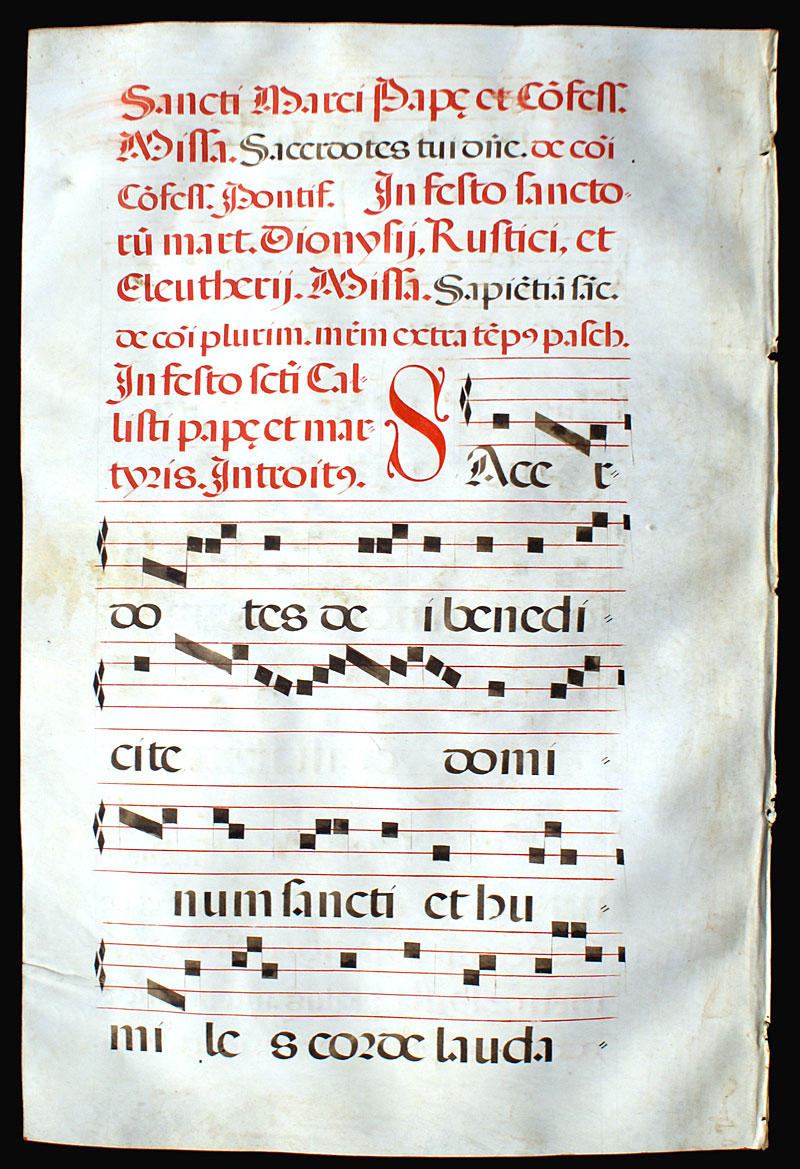 Sancti Marci Papę et Cõfess.
Missa. Sacerdotes tui dñe. de cõi
Cõfess. Pontif. In festo sancto-
rũ mart. Dionysij, Rustici, et
Eleutherij. Missa. Sapiẽtiã sãc.
de cõi plurim. mr̃m extra tẽpꝰ pasch.
In festo sctĩ Cal-
listi papę et mar-
tyris. Introitꝰ.
SAcc r-
do tes de i benedi-
cite domi-
num sancti et hu-
mi le s corde lauda-